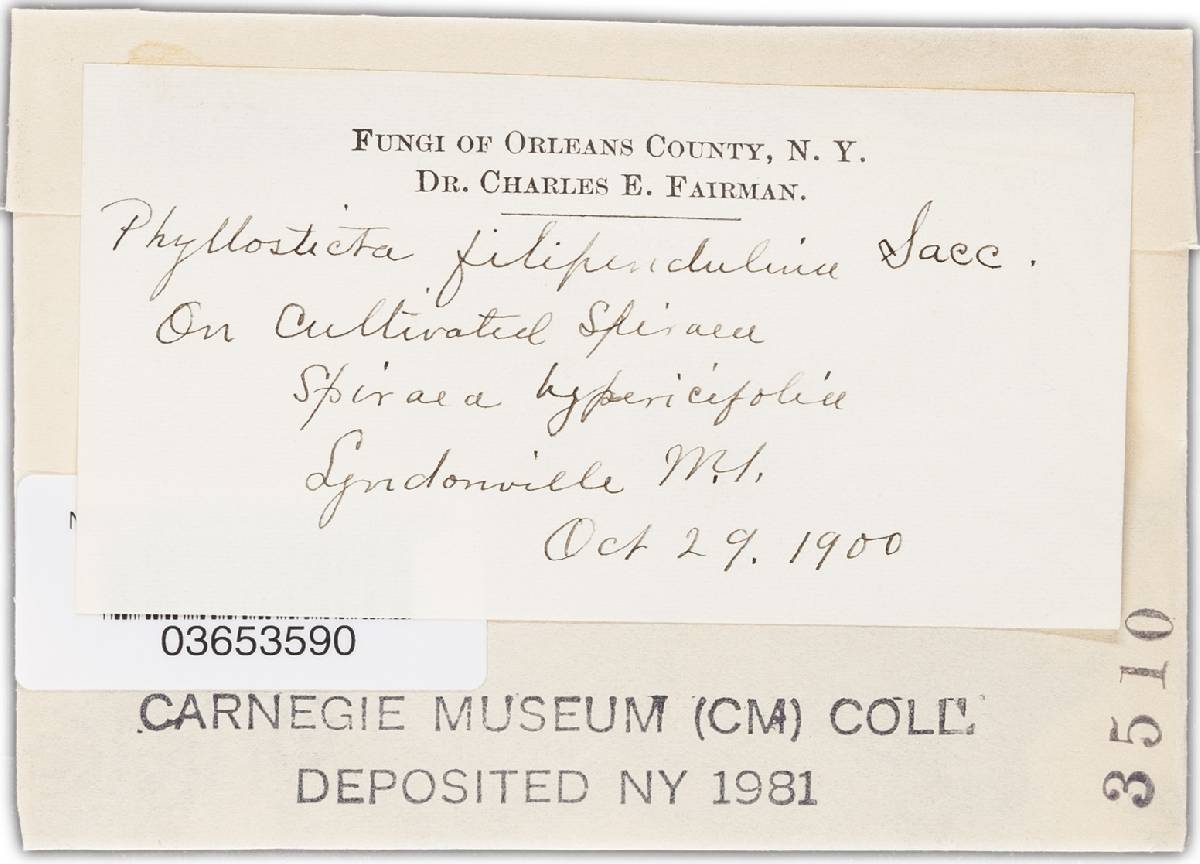 FUNGI OF ORLEANS COUNTY, N. Y.
DR. CHARLES E. FAIRMAN.
Phyllosticta filipendulina Sacc.
On Cultivated Spiraea
Spiraea hypericifolia
Lyndonville
Oct 29. 1900
03653590
CARNEGIE MUSEUM (CM) COLL.
DEPOSITED NY 1981
3510